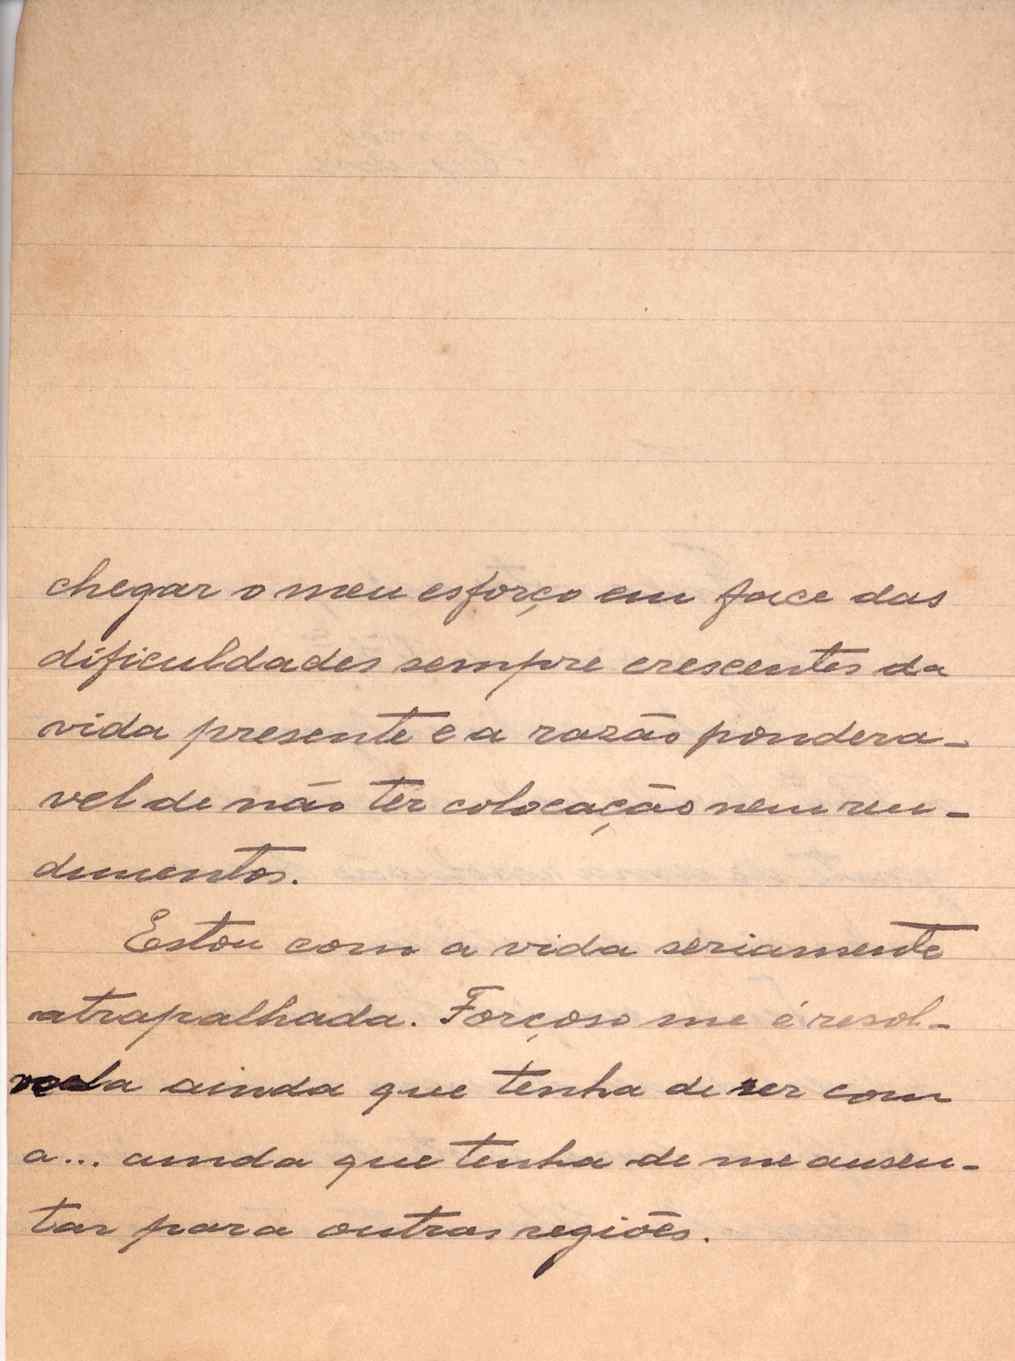 chegar o meu esforço em face das
dificuldades sempre crescentes da
vida presente e a razão pondera-
vel de não ter colocação nem ren-
dimentos.
Estou com a vida seriamente
atrapalhada. Forçoso me é resol-
ve-la ainda que tenha de ser com
a... ainda que tenha de me ausen-
tar para outras regiões.